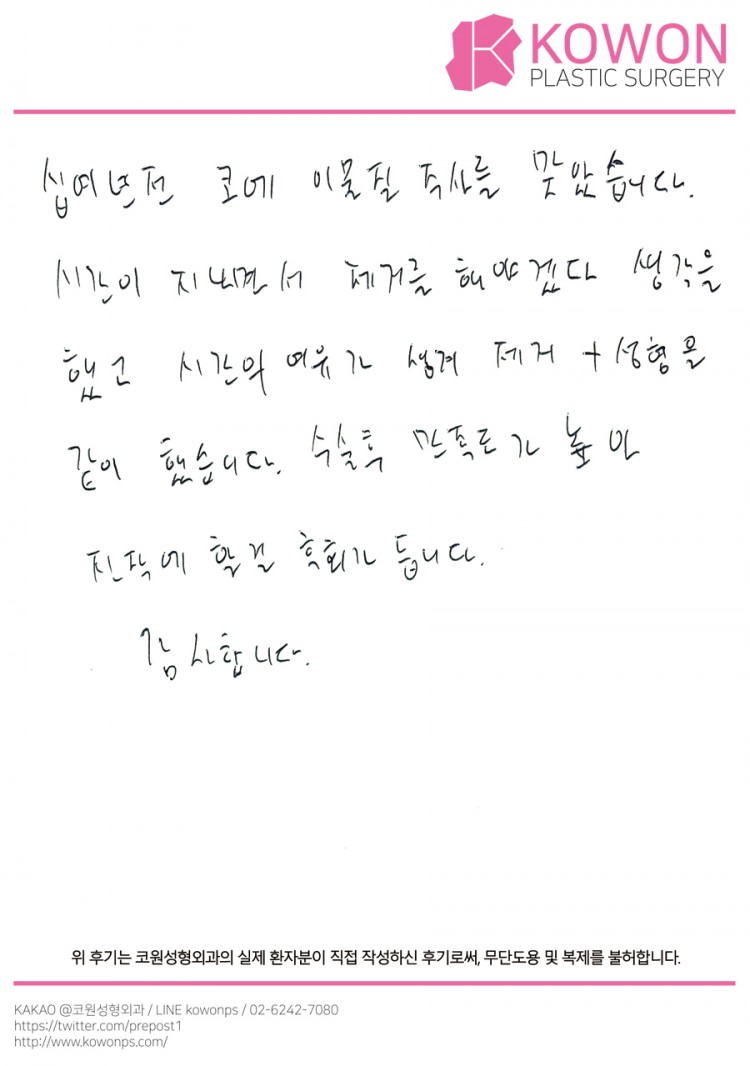 KOWON
PLASTIC SURGERY
십여년전 코에 이물질 주사를 맞았습니다.
시간이 지나면서 제거를 해야겠다 생각을
했고 시간의 여유가 생겨 제거 + 성형을
같이 했습니다. 수술후 만족도가 높아
진작에 할걸 후회가 듭니다.
감사합니다.
위 후기는 코원성형외과의 실제 환자분이 직접 작성하신 후기로써, 무단도용 및 복제를 불허합니다.
KAKAO @코원성형외과 / LINE kowonps / 02-6242-7080
https://twitter.com/prepost1
http://www.kowonps.com/